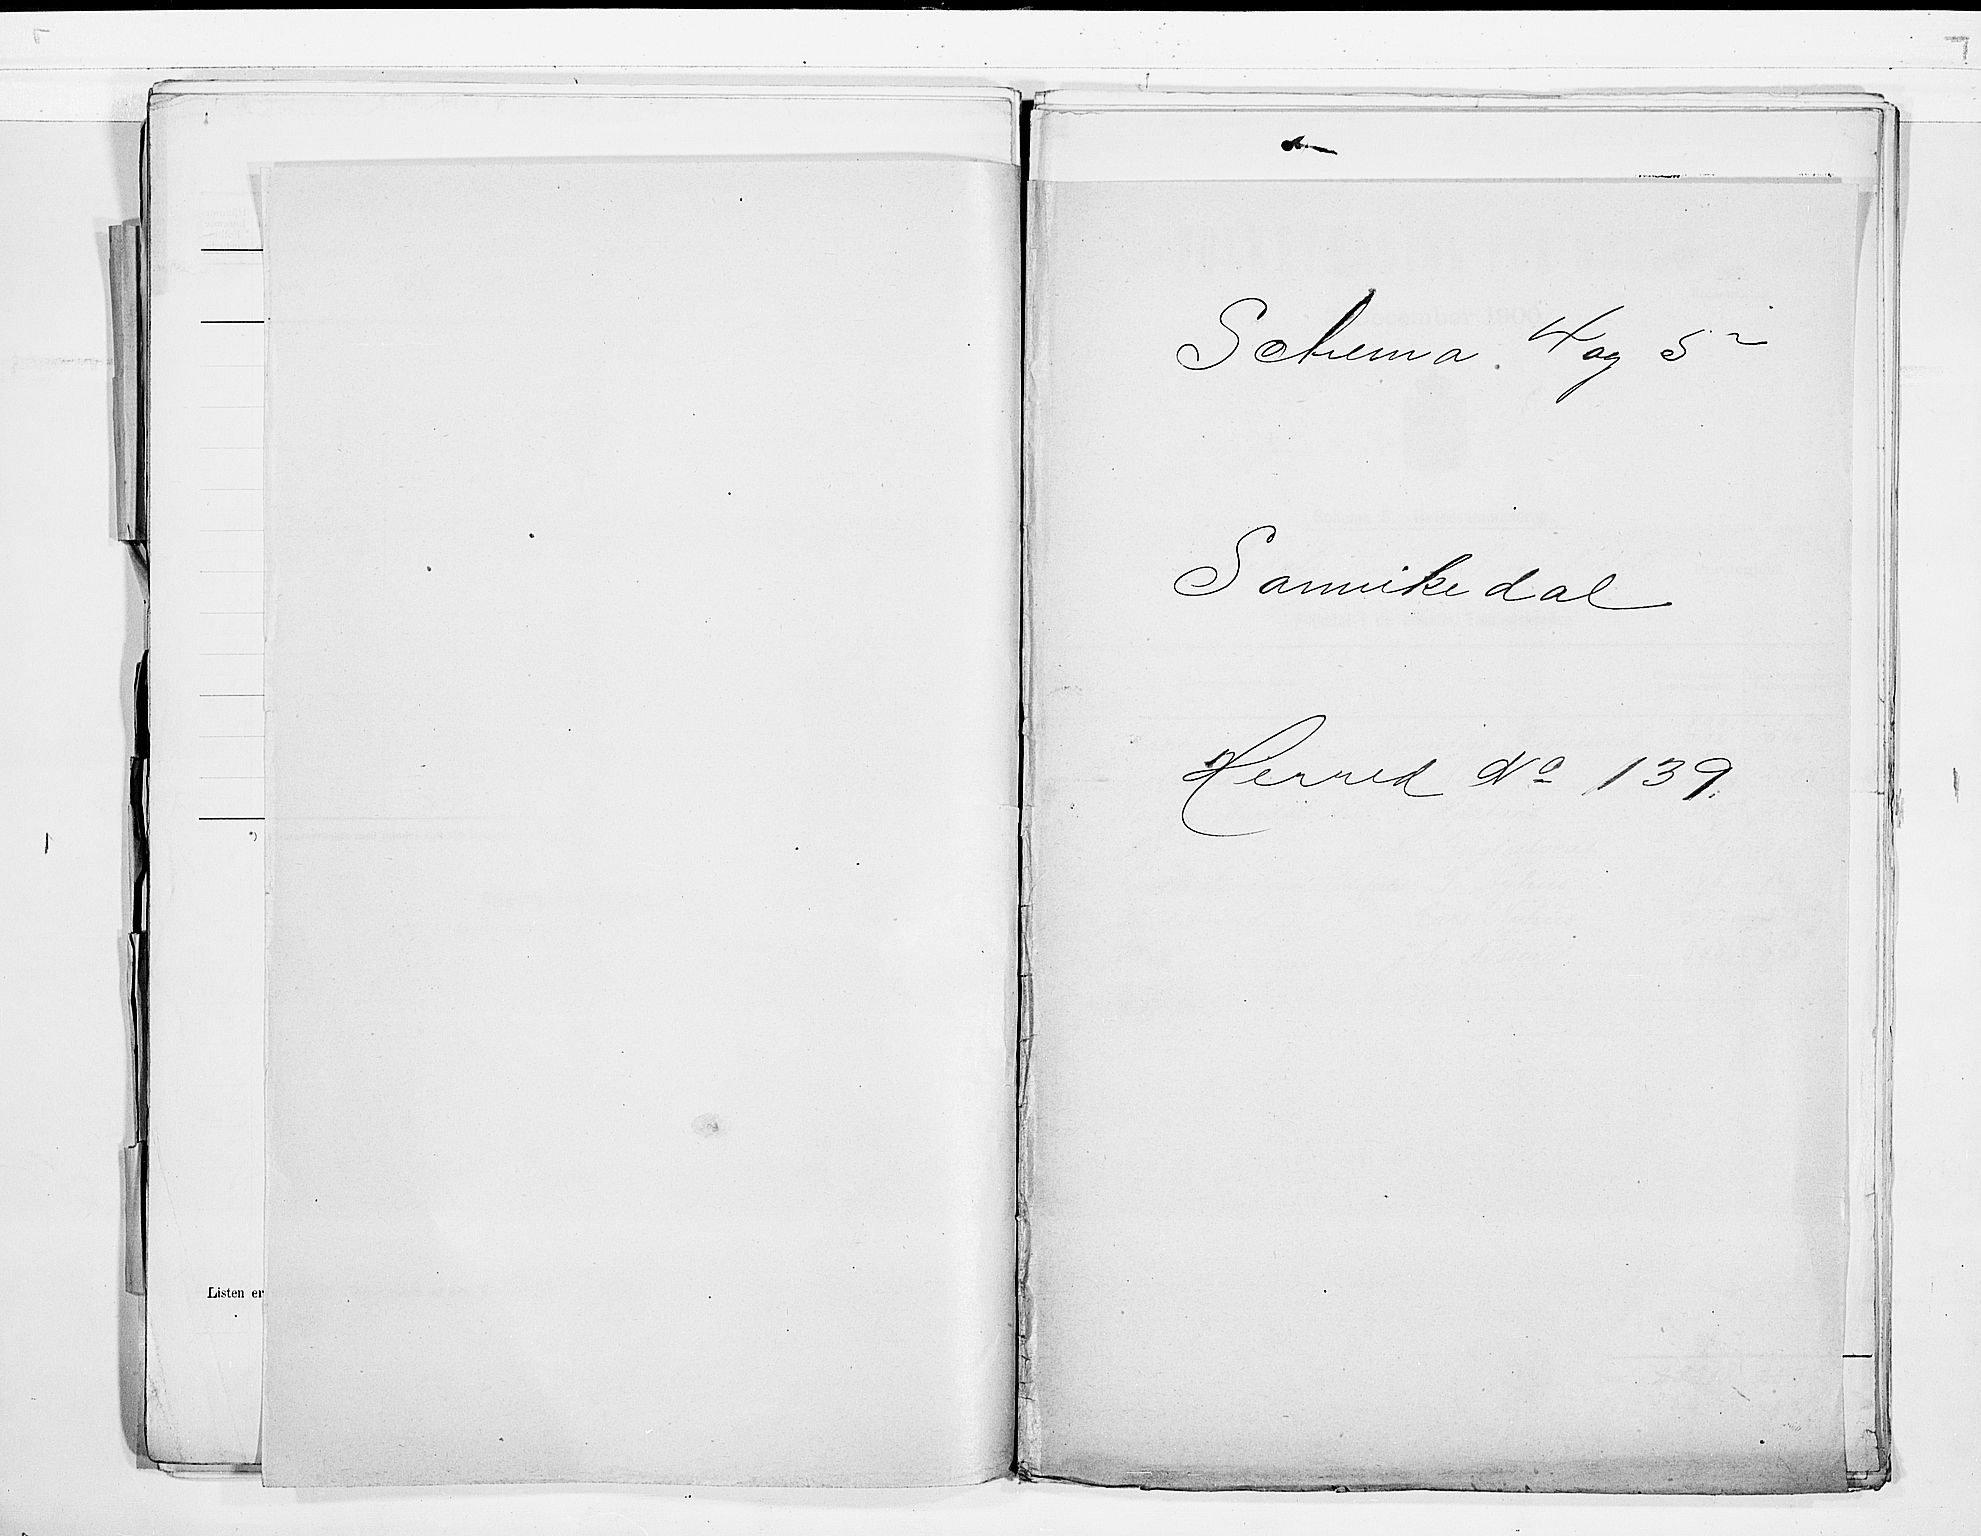 Listen er
Schema. 4 og 5
Sannikedal
Herred No 139.